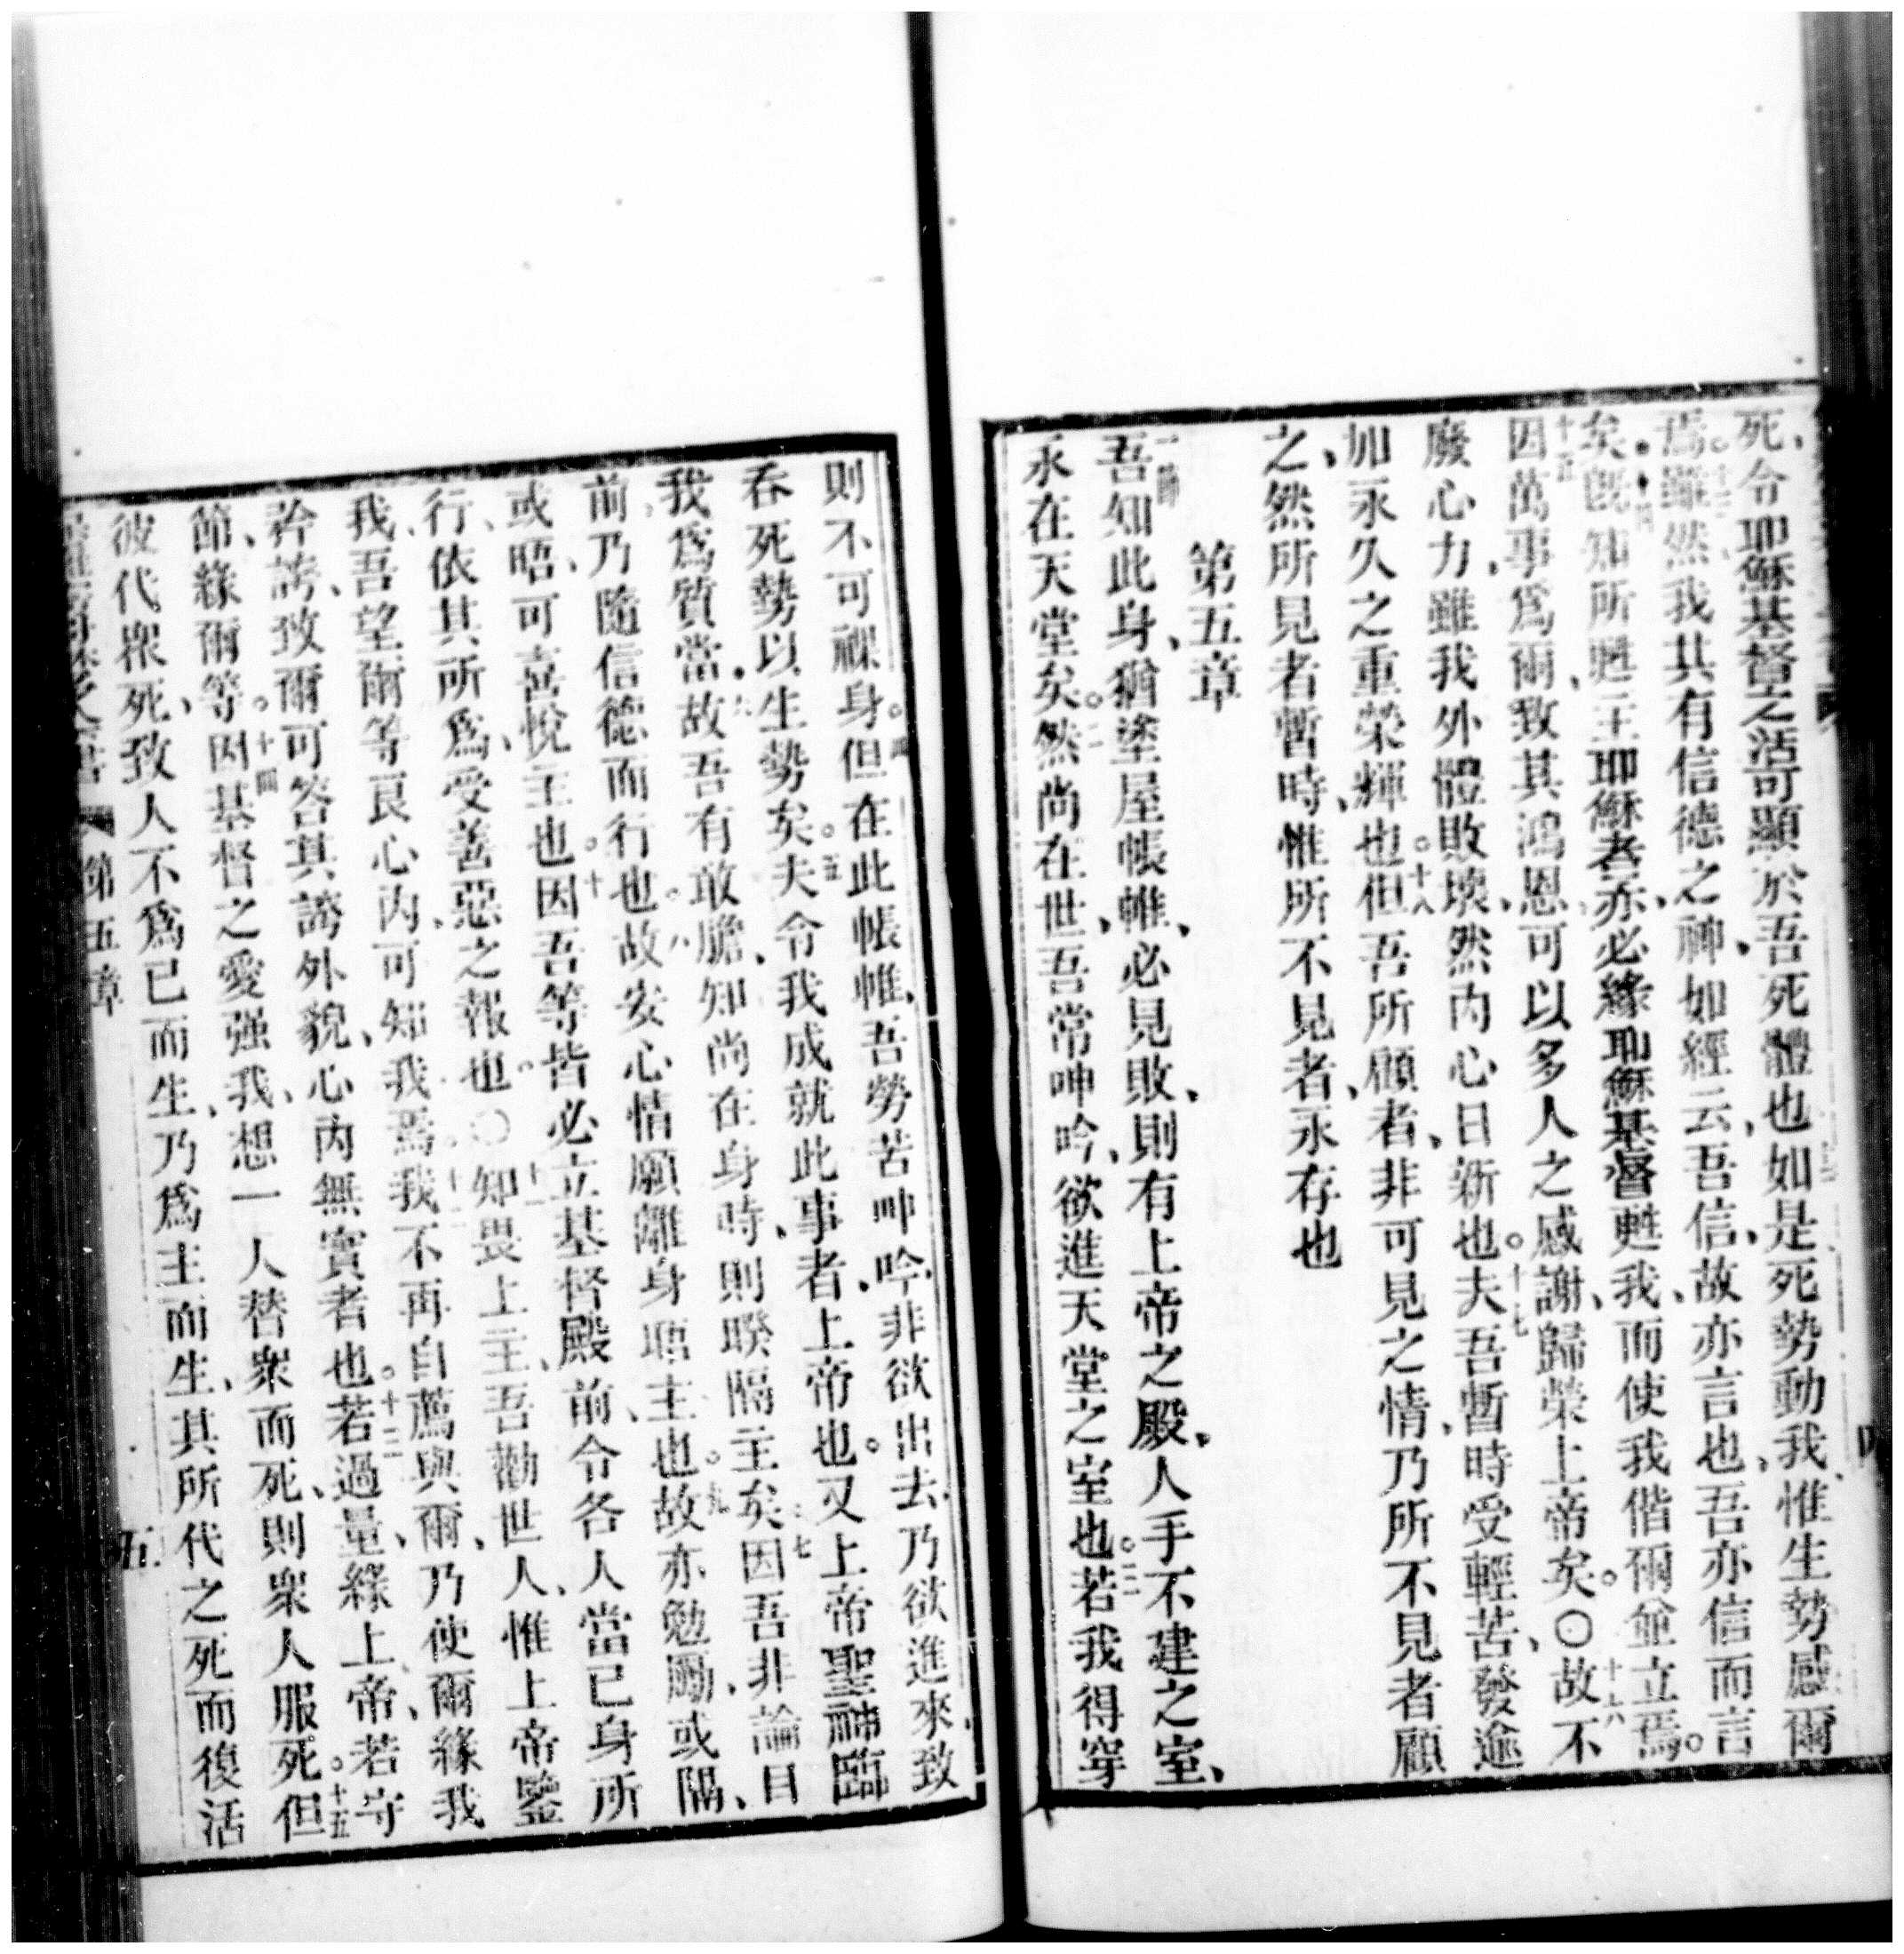 死、令耶穌基督之活可顯於吾死體也如是死勢動我、惟生勢感爾
焉。十三雖然、我其有信德之神、如經云、吾信、故亦言也、吾亦信而言
矣。十四旣知所甦主耶穌者、亦必緣耶穌基督甦我、而使我偕爾並立焉。
十五因萬事爲爾、致其鴻恩、可以多人之感謝、歸榮上帝矣。〇十六故不
廢心力、雖我外體敗壞、然內心日新也。十七夫吾暫時受輕苦、發逾
加永久之重榮輝也。十八但吾所顧者、非可見之情、乃所不見者顧
之、然所見者暫時、惟所不見者、永存也
第五章
一節吾知此身、猶塗屋帳帷、必見敗、則有上帝之殿、人手不建之室、
永在天堂矣。二然尚在世、吾常呻吟、欲進天堂之室也。三若我得穿
則不可祼身。四但在此帳帷、吾勞苦呻吟、非欲出去、乃欲進來、致
吞死勢以生勢矣。五夫令我成就此事者、上帝也。又上帝聖神臨
我爲質當。六故吾有敢膽、知尚在身時、則暌隔主矣、七因吾非論目
前、乃隨信德而行也。八故安心情願離身晤主也。九故亦勉勵、或隔、
或晤、可喜悅主也。十因吾等皆必立基督殿前、令各人當已身所
行、依其所爲、受善惡之報也。〇十一知畏上主、吾勸世人、惟上帝鑒
我、吾望爾等良心內、可知我焉。十二我不再自薦與爾、乃使爾緣我
矜誇、致爾可答其誇外貌、心內無實者也。十三若過量、緣上帝、若守
節、緣爾等。十四因基督之愛强我、想一人替衆而死、則衆人服死。十五但
彼代衆死、致人不爲已而生、乃爲主而生、其所代之死而復活
第五章
五